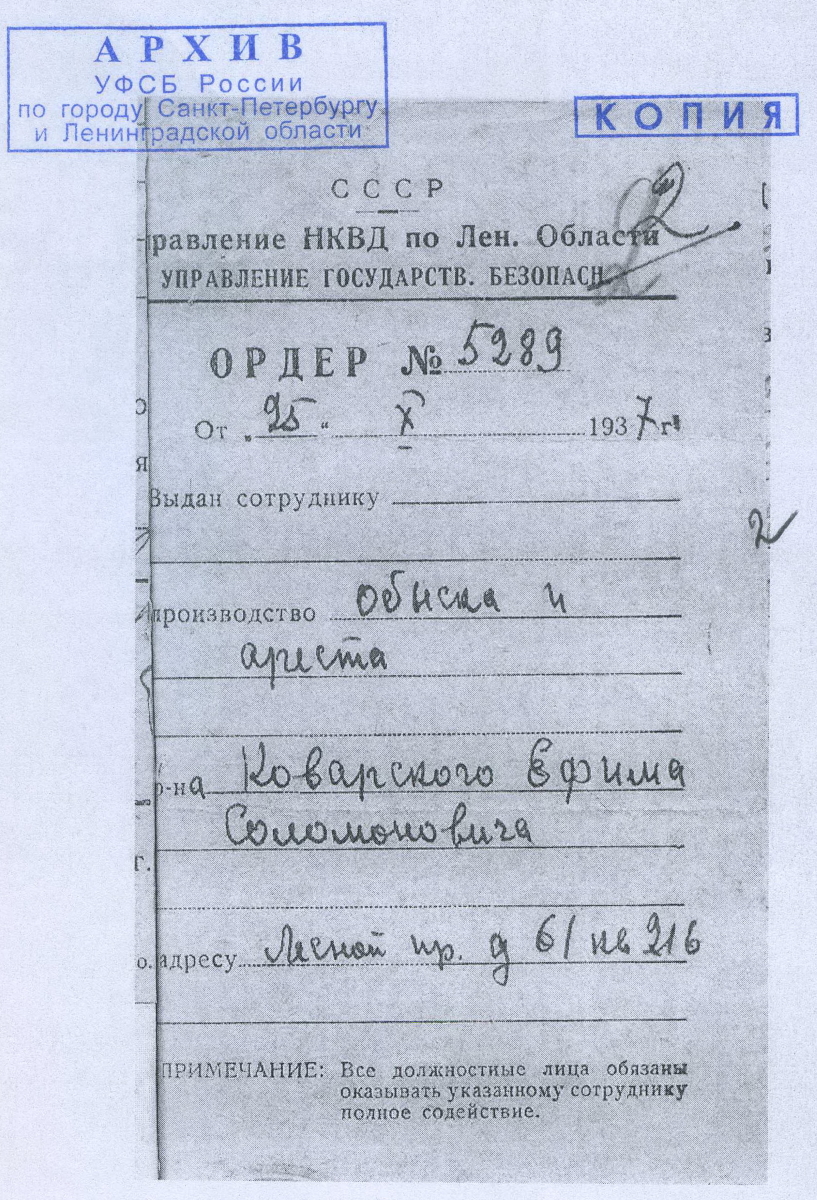 АРХИВ
УФСБ России
по городу Санкт-Петербургу
и Ленинградской области
КОПИЯ
СССР
2
равление НКВД по Лен. Области
УПРАВЛЕНИЕ ГОСУДАРСТВ. БЕЗОПАСН
ОРДЕР № 5289
От „25“ X 1937 г.
Выдан сотруднику
2
производство обыска и
ареста
р-на Коварского Ефима
Соломоновича
г.
о. адресу Лесной пр. д 61 кв 216
ПРИМЕЧАНИЕ: Все должностные лица обязаны
оказывать указанному сотруднику
полное содействие.